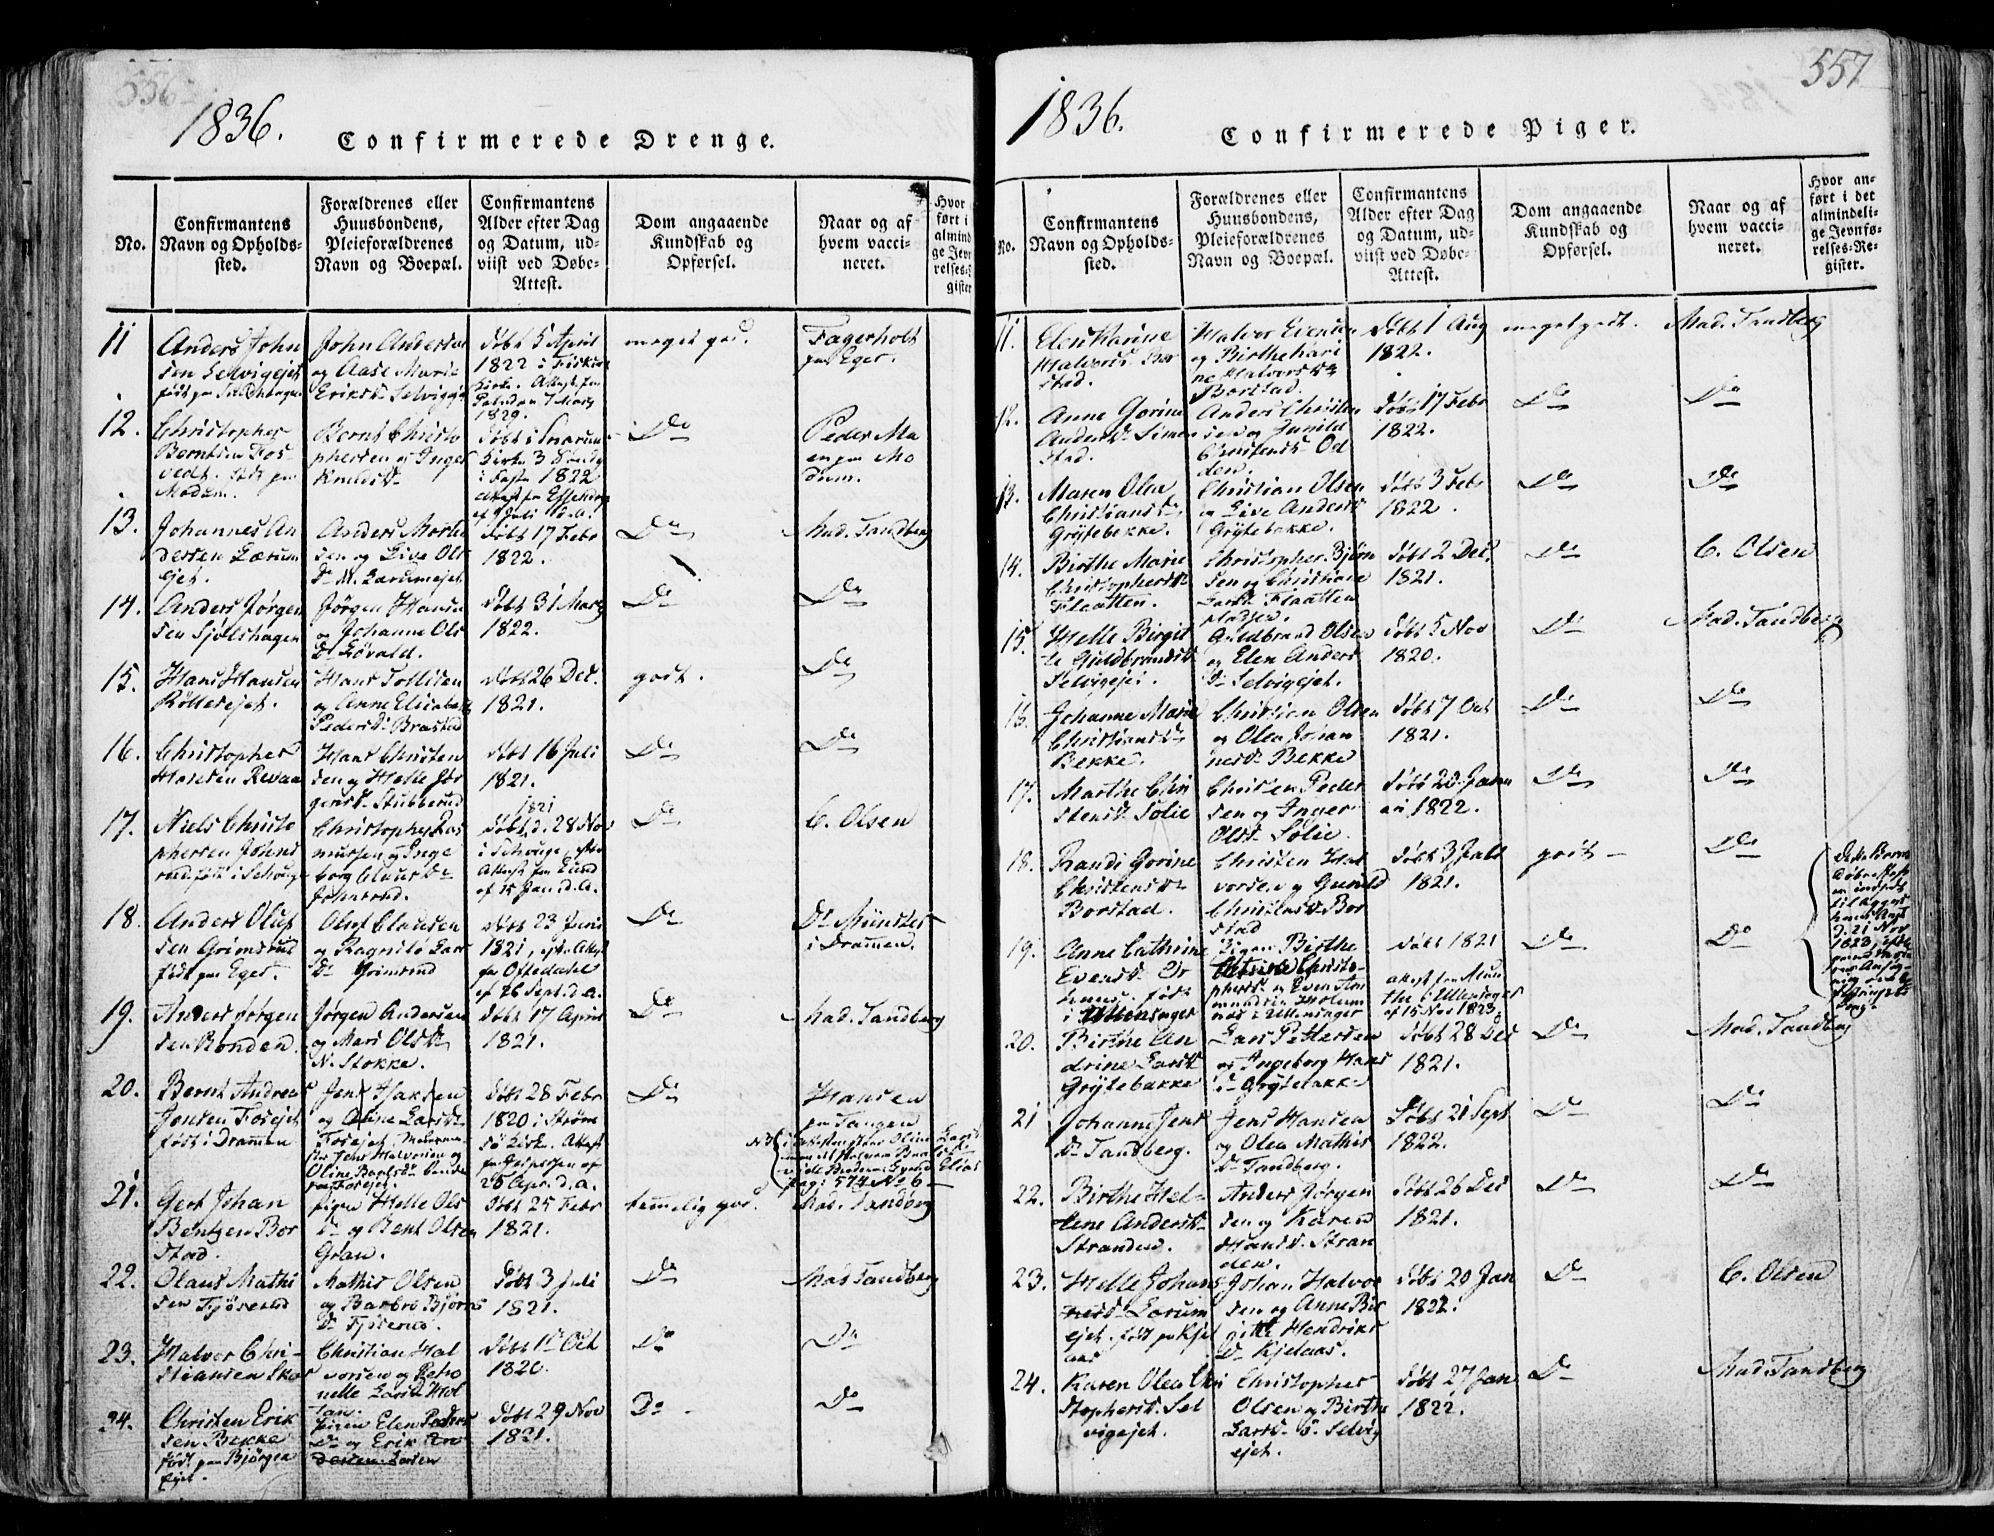 556
1836.
Confirmerede Drenge.
No.
Confirmantens
Navn og Opholds-
sted.
Forældrenes eller
Huusbondens,
Pleieforældrenes
Navn og Boepæl.
Confirmantens
Alder efter Dag
og Datum, ud-
viist ved Døbe-
Attest.
Dom angaaende
Kundskab og
Opførsel.
Naar og af
hvem vacci-
neret.
Hvor
ført i
almind
ge Jevn
relses-
gister
11
Anders John
sen Selvigejet
John Andersen
og Aase Marie
Eriksd. Selvigej
døbt 5 April
1822 i
Kirke. Attest fra
7 Marz
1829.
meget god.
Fagerholt
paa Eger.
12.
Christopher
Berntsen Fos
vedt. født paa
Modum.
Bernt Christo
phersen og Inger
Knudsd.
døbt i Snarum
Kirke 3 Sønd
i Faste 1822
Do
Peder Ma
en paa Mo
dum.
13.
Johannes An
dersen Lærum
ejet.
Anders Morten
sen og Live Ols
Dr. N. Lærumejet.
døbt 17 Febr
1822.
Do
Mad. Tandberg
14.
Anders Jørgen
sen Sjølshagen
Jørgen Hansen
og Johanne Ols
Dr. Løvald.
døbt 31 Marz
1822.
Do
Do
15.
Hans Hansen
Røllesejet.
Hans Tollisen
og Anne Elisabeth
Pedersd. Brastad
døbt 26 Dec.
1821.
godt.
Do
16.
Christopher
Hansen Revaa
Hans Christen
sen og Helle Jør
gensd. Stubberud
døbt 16 Juli
1821.
Do
Do
17.
Niels Christo
phersen Johns
rud født i
Christopher Ras
mussen og Inge
borg Clausd.
Johnsrud.
1821
døbt d. 28 Nov
Attest fra Lund
af 15 Jan. d. A.
Do
C. Olsen
18.
Anders Oluf
sen Grimsrud
født paa Eger.
Oluf Clausen
og Ragnild Lars
Dr. Grimsrud
døbt 23 Juni
1821, Attest
fra Oftedahl
af 26 Sept. d. a.
Do
Dr. Münster
i Drammen.
19.
Anders Jørgen
sen Ronden.
Jørgen Andersen
og Mari Olsd.
N. Stokke.
døbt 17 April
1821.
Do
Mad. Tandberg
20.
Bernt Andreas
Jensen Fosejet
født i Drammen
Jens Hansen
og Oline Larsd.
Fosejet.
døbt 28 Febr
1820 i Strøm
sø Kirke. Attest
af
26 Apr. d. a.
Do
Hansen
paa Tangen
pag: 574 No 6
21.
Gert Johan
Bentzen Bor
stad.
Pigen Helle Ols
Dr. og Bent Olsen
Gran.
døbt 25 Febr
1821.
temmelig god.
Mad. Tandberg
22.
Olaus Mathi
sen Fjøserud
Mathis Olsen
og Barbro Bjørns
Dr.
døbt 3 Juli
1821.
Do
Mad Tandberg
23.
Halvor Chri-
stiansen
Christian Hal
vorsen og Petro
nelle Larsd. Hol
tan.
døbt 1 Oct
1820.
Do
Do
24.
Christen Erik
sen Bekke
født paa Bjørge
ejet.
Pigen Elen Peders
Dr. og Erik
døbt 29 Nov
1821.
Do
Do
557
1836.
Confirmerede Piger.
No.
Confirmantens
Navn og Opholds-
sted.
Forældrenes eller
Huusbondens,
Pleieforældrenes
Navn og Boepæl.
Confirmantens
Alder efter Dag
og Datum, ud-
viist ved Døbe-
Attest.
Dom angaaende
Kundskab og
Opførsel.
Naar og af
hvem vacci-
neret.
Hvor an-
ført i det
almindeli-
ge Jevnfø-
relses-Re-
gister.
11.
Elen Karine
Halvorsd. Bor
stad.
Halvor Evensen
og Birthe Kari
ne Halvorsd.
Borstad.
døbt 1 Aug
1822.
meget godt.
Mad. Tandberg
12.
Anne Gorine
Andersd. Simon
stad.
Anders Christen
sen og Gunild
Christensd. Od
den.
døbt 17 Febr
1822.
Do
Do
13.
Maren Olea
Christiansd.
Grÿtebekke.
Christian Olsen
og Live Anders
Grÿtebekke.
døbt 3 Febr
1822.
Do
Do
14.
Birthe Marie
Christophersd.
Flaatten.
Christopher Bjørn
sen og Christiane
Larsd. Flaatten
pladsen.
døbt 2 Dec.
1821.
Do
C. Olsen
15.
Helle Birgit
te Guldbrandsd.
Selvigejet.
Guldbrand Olsen
og Elen Anders
Dr. Selvigejet.
døbt 5 Nov
1820.
Do
Mad. Tandberg
16.
Johanne Marie
Christiansd.
Bekke.
Christian Olsen
og Olea Johan
nesd. Bekke
døbt 7 Oct
1821.
Do
Do
17.
Marthe Chri
stensd. Sølie
Christen Peder
sen og Inger
Olsd. Sølie.
døbt 20 Janu
ari 1822.
Do
Do
18.
Randi Gorine
Christensd.
Borstad.
Christen Hal
vorsen og Gunild
Christensd. Bor
stad
døbt 3 Juli
1821.
godt
Do
19.
Anne Cathrine
Evensd.
født
i Ullensager
Pigen Birthe
Christo-
phersd. og Even
i Ullensager
døbt 1821
attest fra Mun
the i Ullensager
af 15 Nov 1823
Do
Do
20.
Birthe An
drine Larsd.
Grÿtebakke
Lars Pettersen
og Ingeborg Hans
Dr. Grÿtebakke
døbt 28 Dec
1821.
Do
Mad. Tandberg
21
Johanne Jens
Dr. Tandberg.
Jens Hansen
og Olea Mathis
Dr. Tandberg.
døbt 21 Sept
1822.
Do
Do
22.
Birthe Hel-
lene Andersd.
Stranden.
Anders Jørgen
sen og Karen
Hansd. Stran
den.
døbt 26 Dec
1821.
Do
Do
23.
Helle Johan
nesd. Lærum
ejet. født paa Kjel
aas
Johan Halvor
sen og Anne Bir
gitte Hendriks
Dr. Kjelaas.
døbt 20 Jan
1822.
Do
C. Olsen
24.
Karen Olea Chri
stophersd. Sel
vigejet.
Christopher
Olsen og Birthe
Larsd. Selvig
ejet.
døbt 27 Jan
1822.
Do
Mad. Tandberg